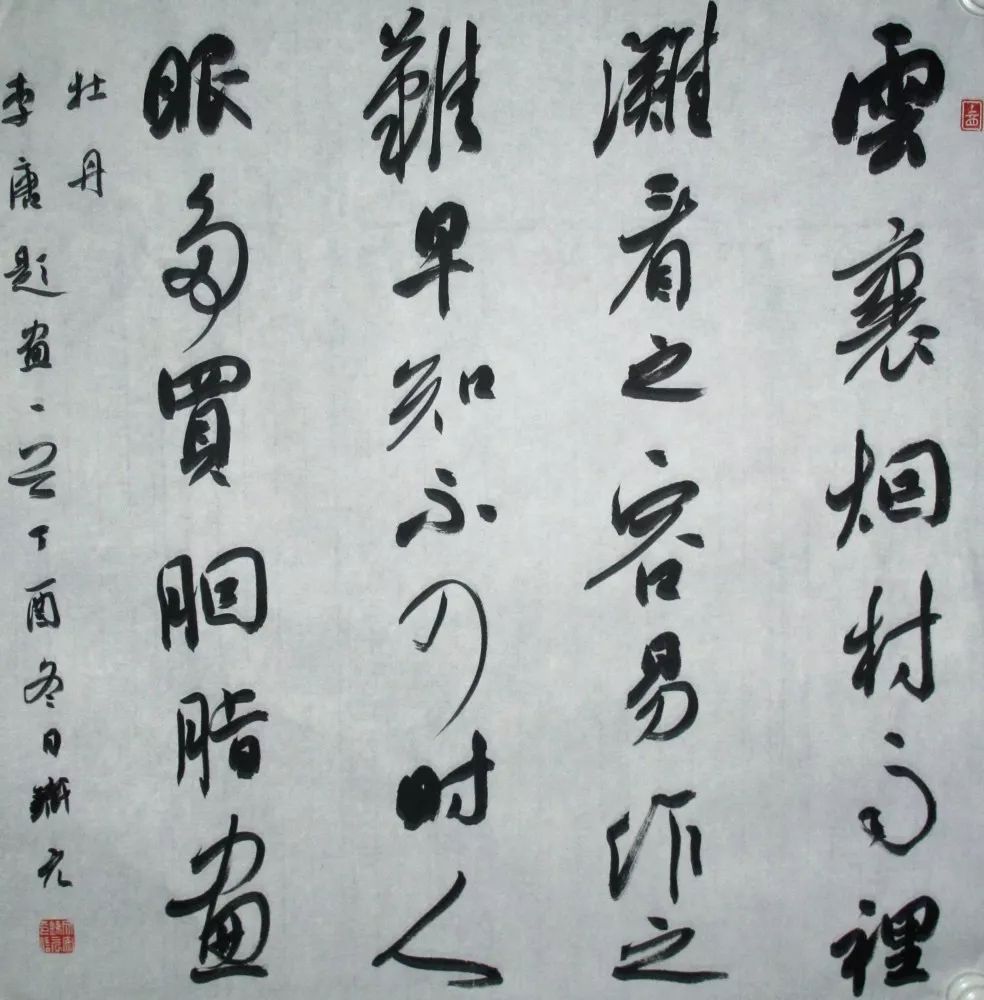 雲裏烟村雨裡
灘看之容易作之
難早知不时人
眼多買胭脂畫
牡丹
李唐题畫一首丁酉冬日